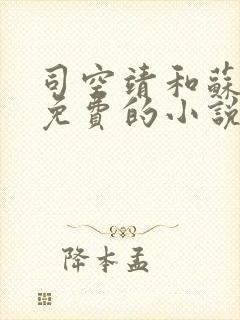 司空靖和蘇
免費的小說
降本孟